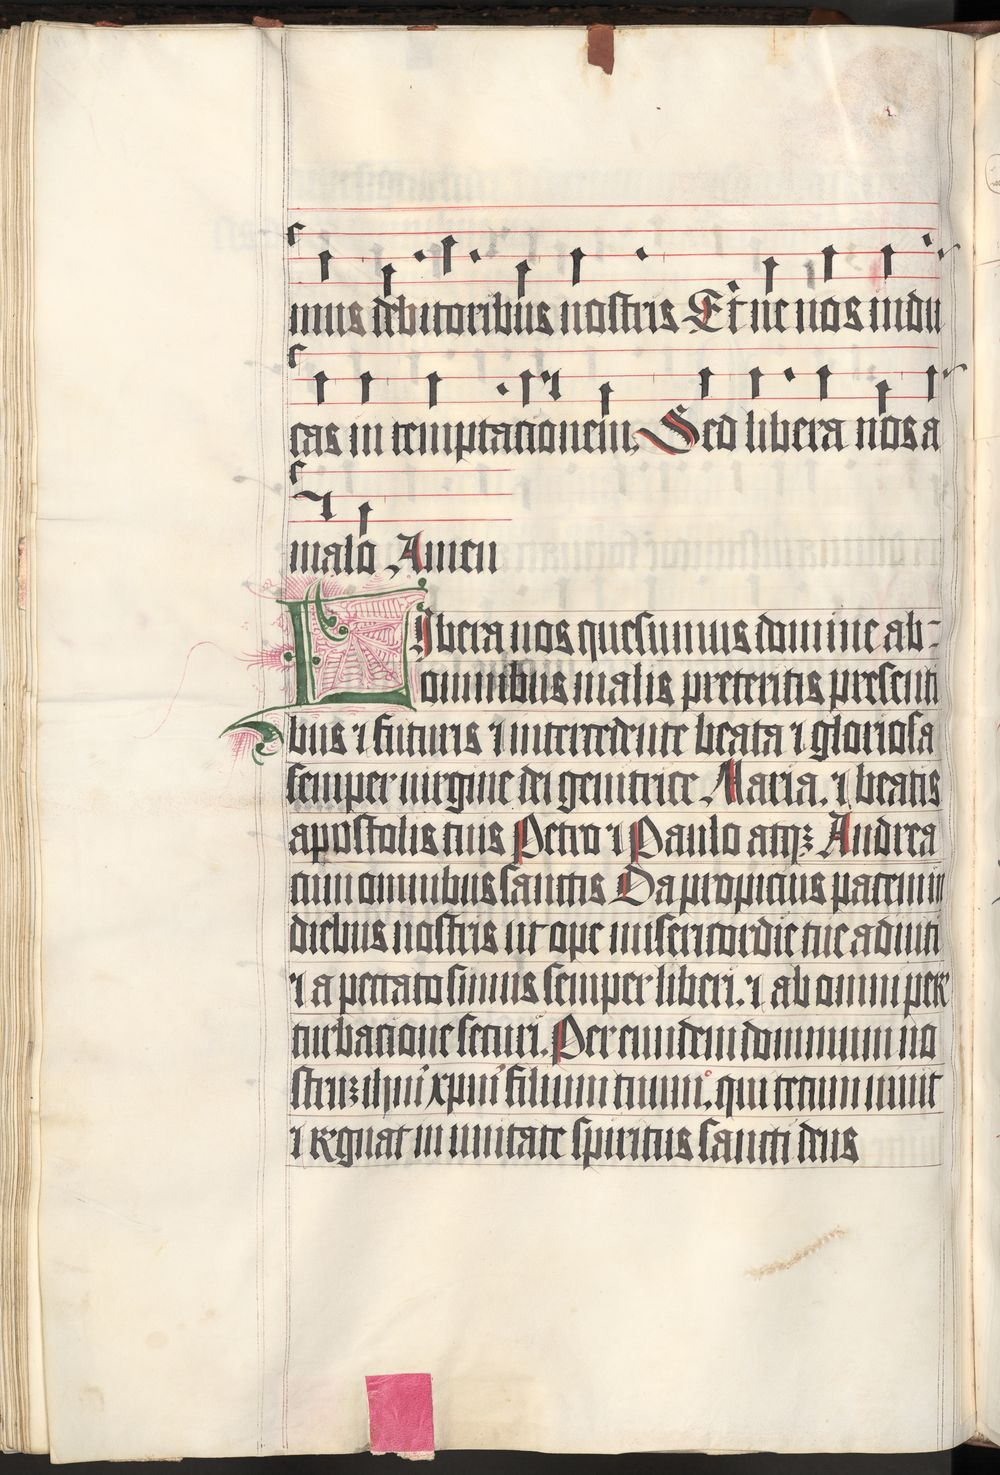 mus debitoribus nostris Et ne nos indu
cas in temptationem, Sed libera nos a
malo Amen
Libera nos quesumus domine ab-
omnibus malis preteritis presenti
bus ⁊ futuris ⁊ intercedente beata ⁊ gloriosa
semper uirgine dei genitrice Maria. ⁊ beatis
apostolis tuis Petro ⁊ Paulo atqꝫ Andrea
cum omnibus sanctis Da propicius pacem in
diebus nostris ut ope misericordie tue adiuti
⁊ a peccato simus semper liberi. ⁊ ab omni per
turbatione securi. Per eumdem dominum no
struꝫ ihm̄ xpm̄ filium tuum. qui tecum uiuit
⁊ regnat in unitate spiritus sancti deus